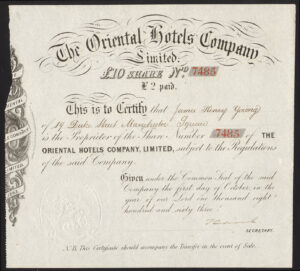 The Oriental Hotels Company
Limited.
£10 SHARE No 7485
£2 paid.
This is to Certify that James Henry Young
of 19 Duke Street Manchester Square
is the Proprietor of the Share Number 7485 of THE
ORIENTAL HOTELS COMPANY, LIMITED, subject to the Regulations
of the said Company.
Given under the Common Seal of the said
Company the first day of October, in the
year of our Lord one thousand eight
hundred and sixty three.
SECRETARY.
N.B. This Certificate should accompany the Transfer in the event of Sale.